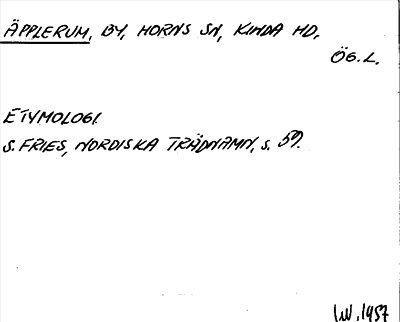 ÄPPLERUM, BY, HORNS SN, KINDA HD,
ÖG.L.
ETYMOLOGI.
S. FRIES, NORDISKA TRÄDNAMN, S. 59.
IW, 1957